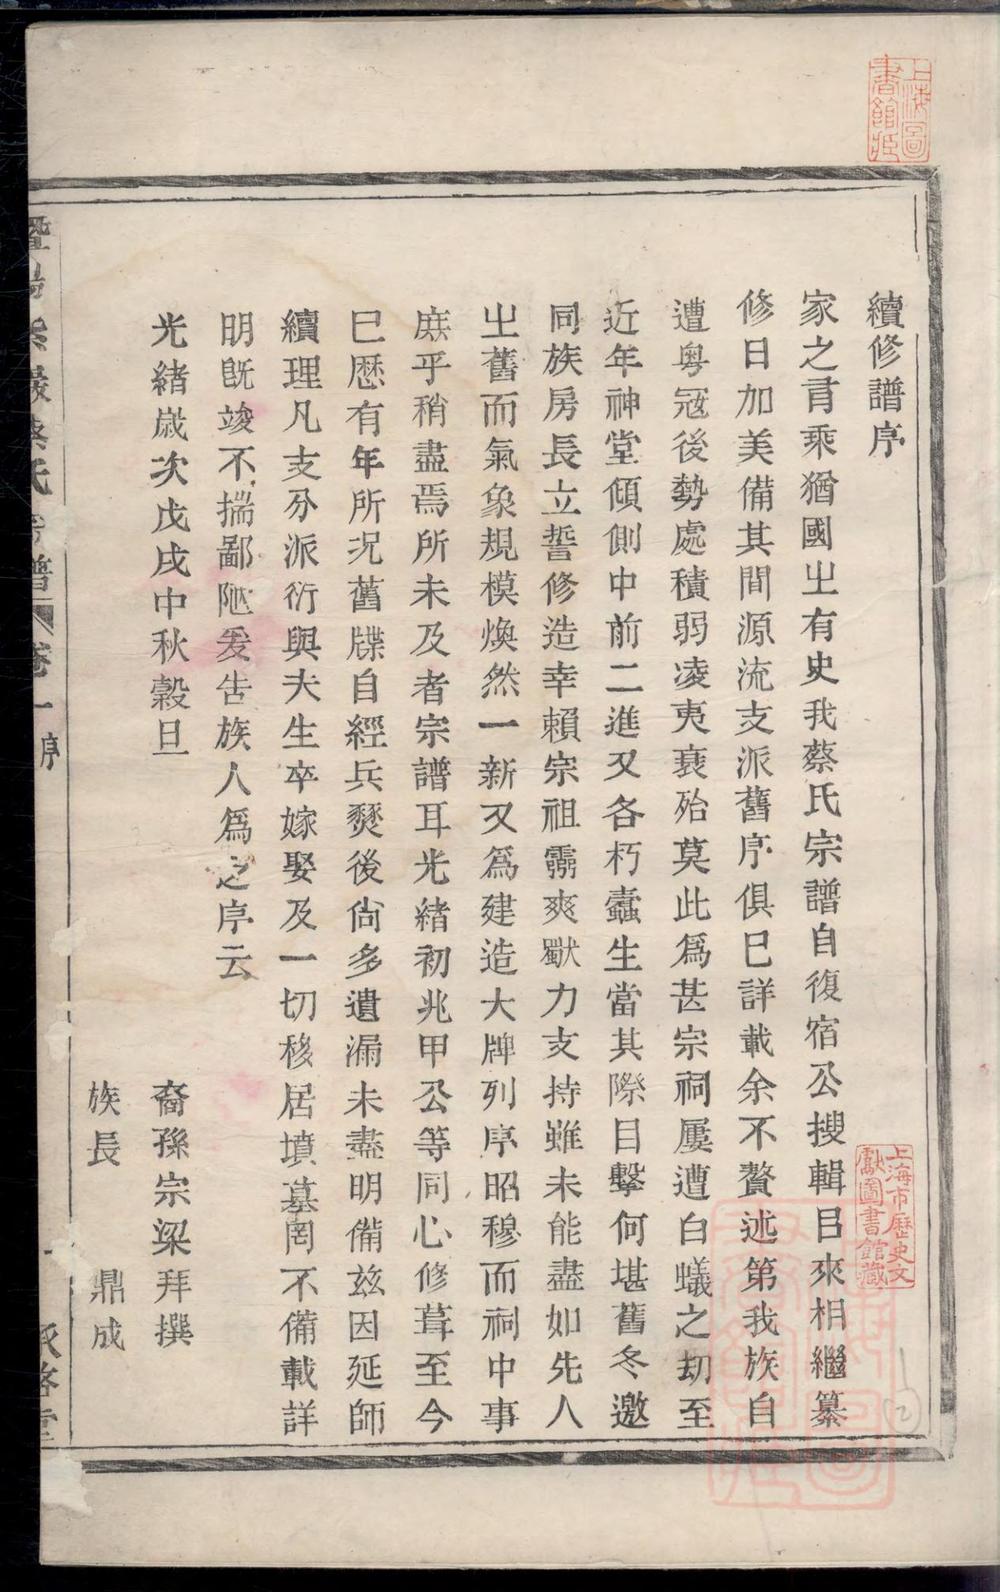 續修譜序
家之有乘猶國㞢有史我蔡氏宗譜自復宿公搜輯㠯來相繼纂
修日加美備其間源流支派舊序俱已詳載余不贅述第我族自
遭粤冦後勢處積弱凌夷衰殆莫此爲甚宗祠屢遭白蟻之刧至
近年神堂傾側中前二進又各朽蠹生當其際目擊何堪舊冬邀
同族房長立誓修造幸賴宗祖靈爽獣力支持雖未能盡如先人
㞢舊而氣象規模煥然一新又爲建造大牌列序昭穆而祠中事
庶乎稍盡焉所未及者宗譜耳光緒初兆甲公等同心修葺至今
已歷有年所況舊牒自經兵燹後尙多遺漏未盡明備玆因延師
續理凡支分派衍與夫生卒嫁娶及一切移居墳墓罔不備載詳
明既竣不揣鄙陋爰告族人爲之序云
光緒歲次戊戌中秋穀旦
裔孫宗梁拜撰
族長 鼎成
蔡氏宗譜 卷一 序
上海圖書館藏
上海市歷史文獻圖書館藏